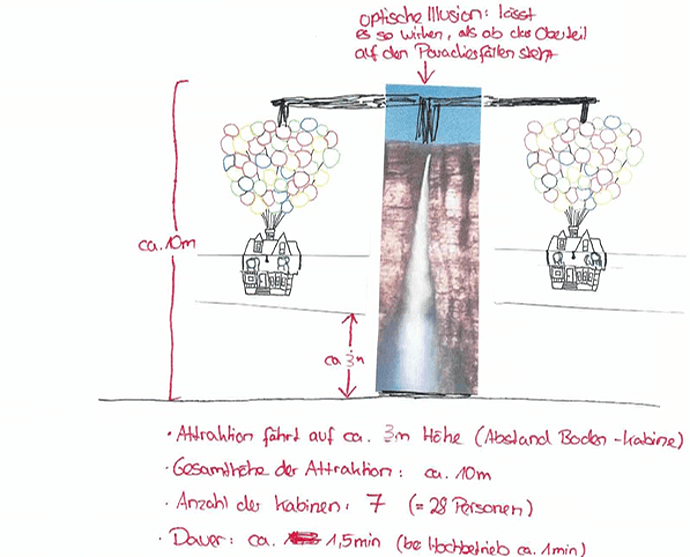 optische Illusion: lässt
es so wirken, als ob das Oberteil
auf den Paradiesfällen steht
ca. 10m
ca 3m
· Attraktion fährt auf ca. 3m Höhe (Abstand Boden-Kabine)
· Gesamthöhe der Attraktion: ca. 10m
· Anzahl der Kabinen: 7 (= 28 Personen)
· Dauer: ca. 1,5min (bei Hochbetrieb ca. 1min)